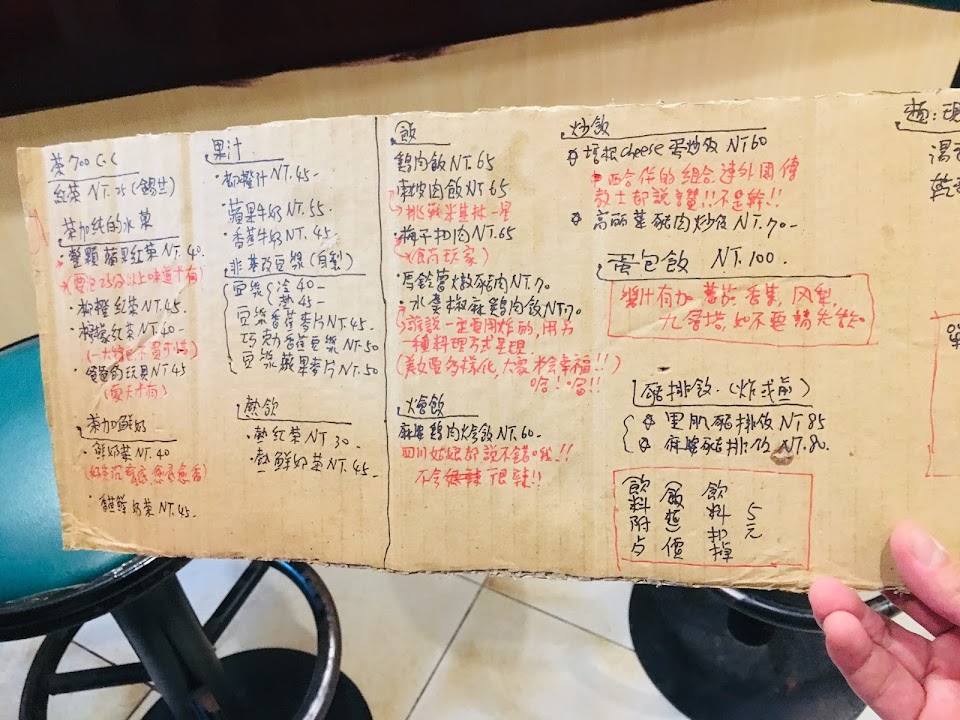 茶 700 C.C
紅茶 NT.25 (錫蘭)
茶加純的水菓
·整顆蘋果紅茶 NT.40
·柳橙紅茶 NT.45.
·檸檬紅茶 NT.40-
·爸爸的玩具 NT 45
(夏天才有)
茶加鮮奶
·鮮奶茶 NT.40
鮮奶茶 NT.45.
果汁
·柳橙汁 NT.45-
·蘋果牛奶 NT.55.
·香蕉牛奶 NT.45-
非基改豆漿 (自製)
豆漿 冷 40-
熱 45-
豆漿香蕉麥片 NT.45.
巧克力香蕉豆漿 NT.50
豆漿蘋果麥片 NT.50
熱飲
·熱紅茶 NT.30.
·熱鮮奶茶 NT.45.
飯
雞肉飯 NT.65
東坡肉飯 NT 65
挑戰米其林一星
·梅干扣肉 NT.65
(食尚玩家)
·馬鈴薯燉豬肉 NT.70
·水煮椒麻雞肉飯 NT.70
誰說一定要用炸的,用另
一種料理方式呈現
(美女要多樣化,大家才會幸福!!)
哈!哈!!
燴飯
麻婆雞肉燴飯 NT.60-
四川姑娘都說不錯哦!!
不会很辣!!
炒飯
培根 cheese 蛋炒飯 NT 60
西合併的組合 連外國傳
教士都說讚!!不是幹!!
高麗菜豬肉炒飯 NT.70-
蛋包飯 NT 100.
醬汁有加 蕃茄 香蕉, 鳳梨,
九層塔, 如不要請先告知
豬排飯 (炸或煎)
里肌豬排飯 NT.85
麻婆豬排飯 NT.80.
飲料附点
飯(麵)價
飲料扣掉
5元
麵:現
湯
乾